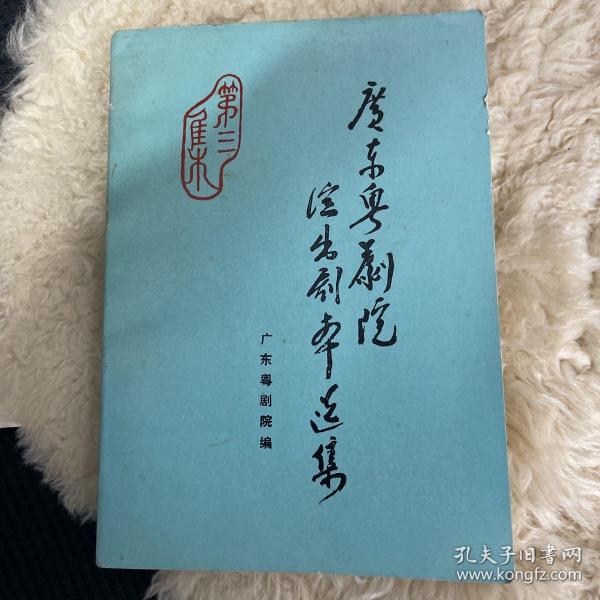 第三集
廣东粤劇院
演出剧本选集
广东粤剧院编
孔夫子旧书网
www.kongfz.com